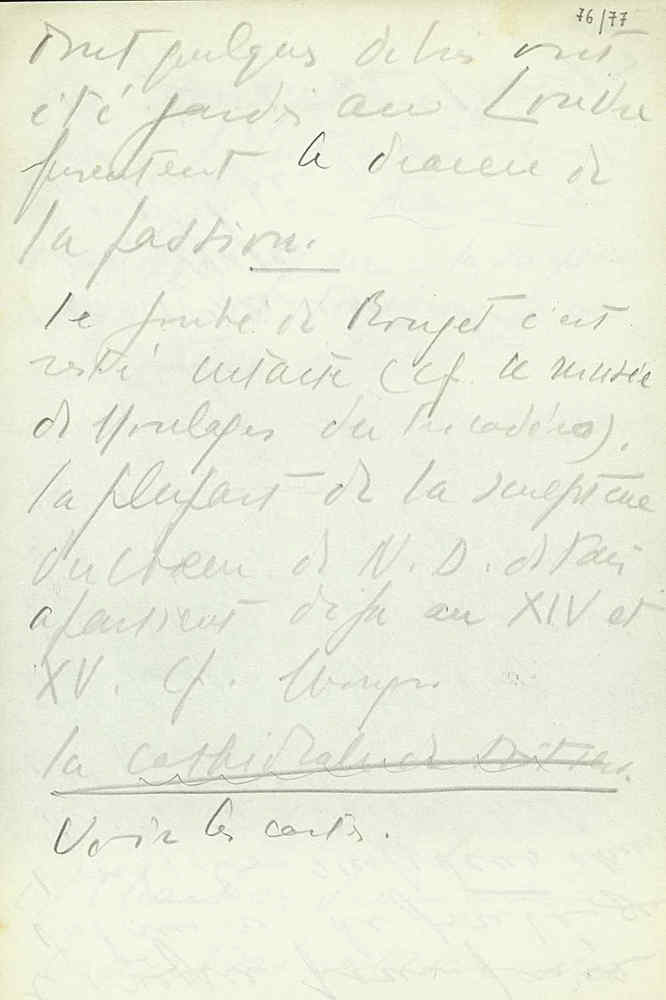 76/77
dont quelques débris ont
été gardés au Louvre
présentent le drame de
la passion.
le jubé de Bourget c'est
resté intacte (cf. le musée
de Moulages du Trocadéro).
la plupart de la sculpture
du choeur de N. D. de Paris
apartient déja au XIV et
XV. Cf.
la cathédrale de
Voir les cartes.